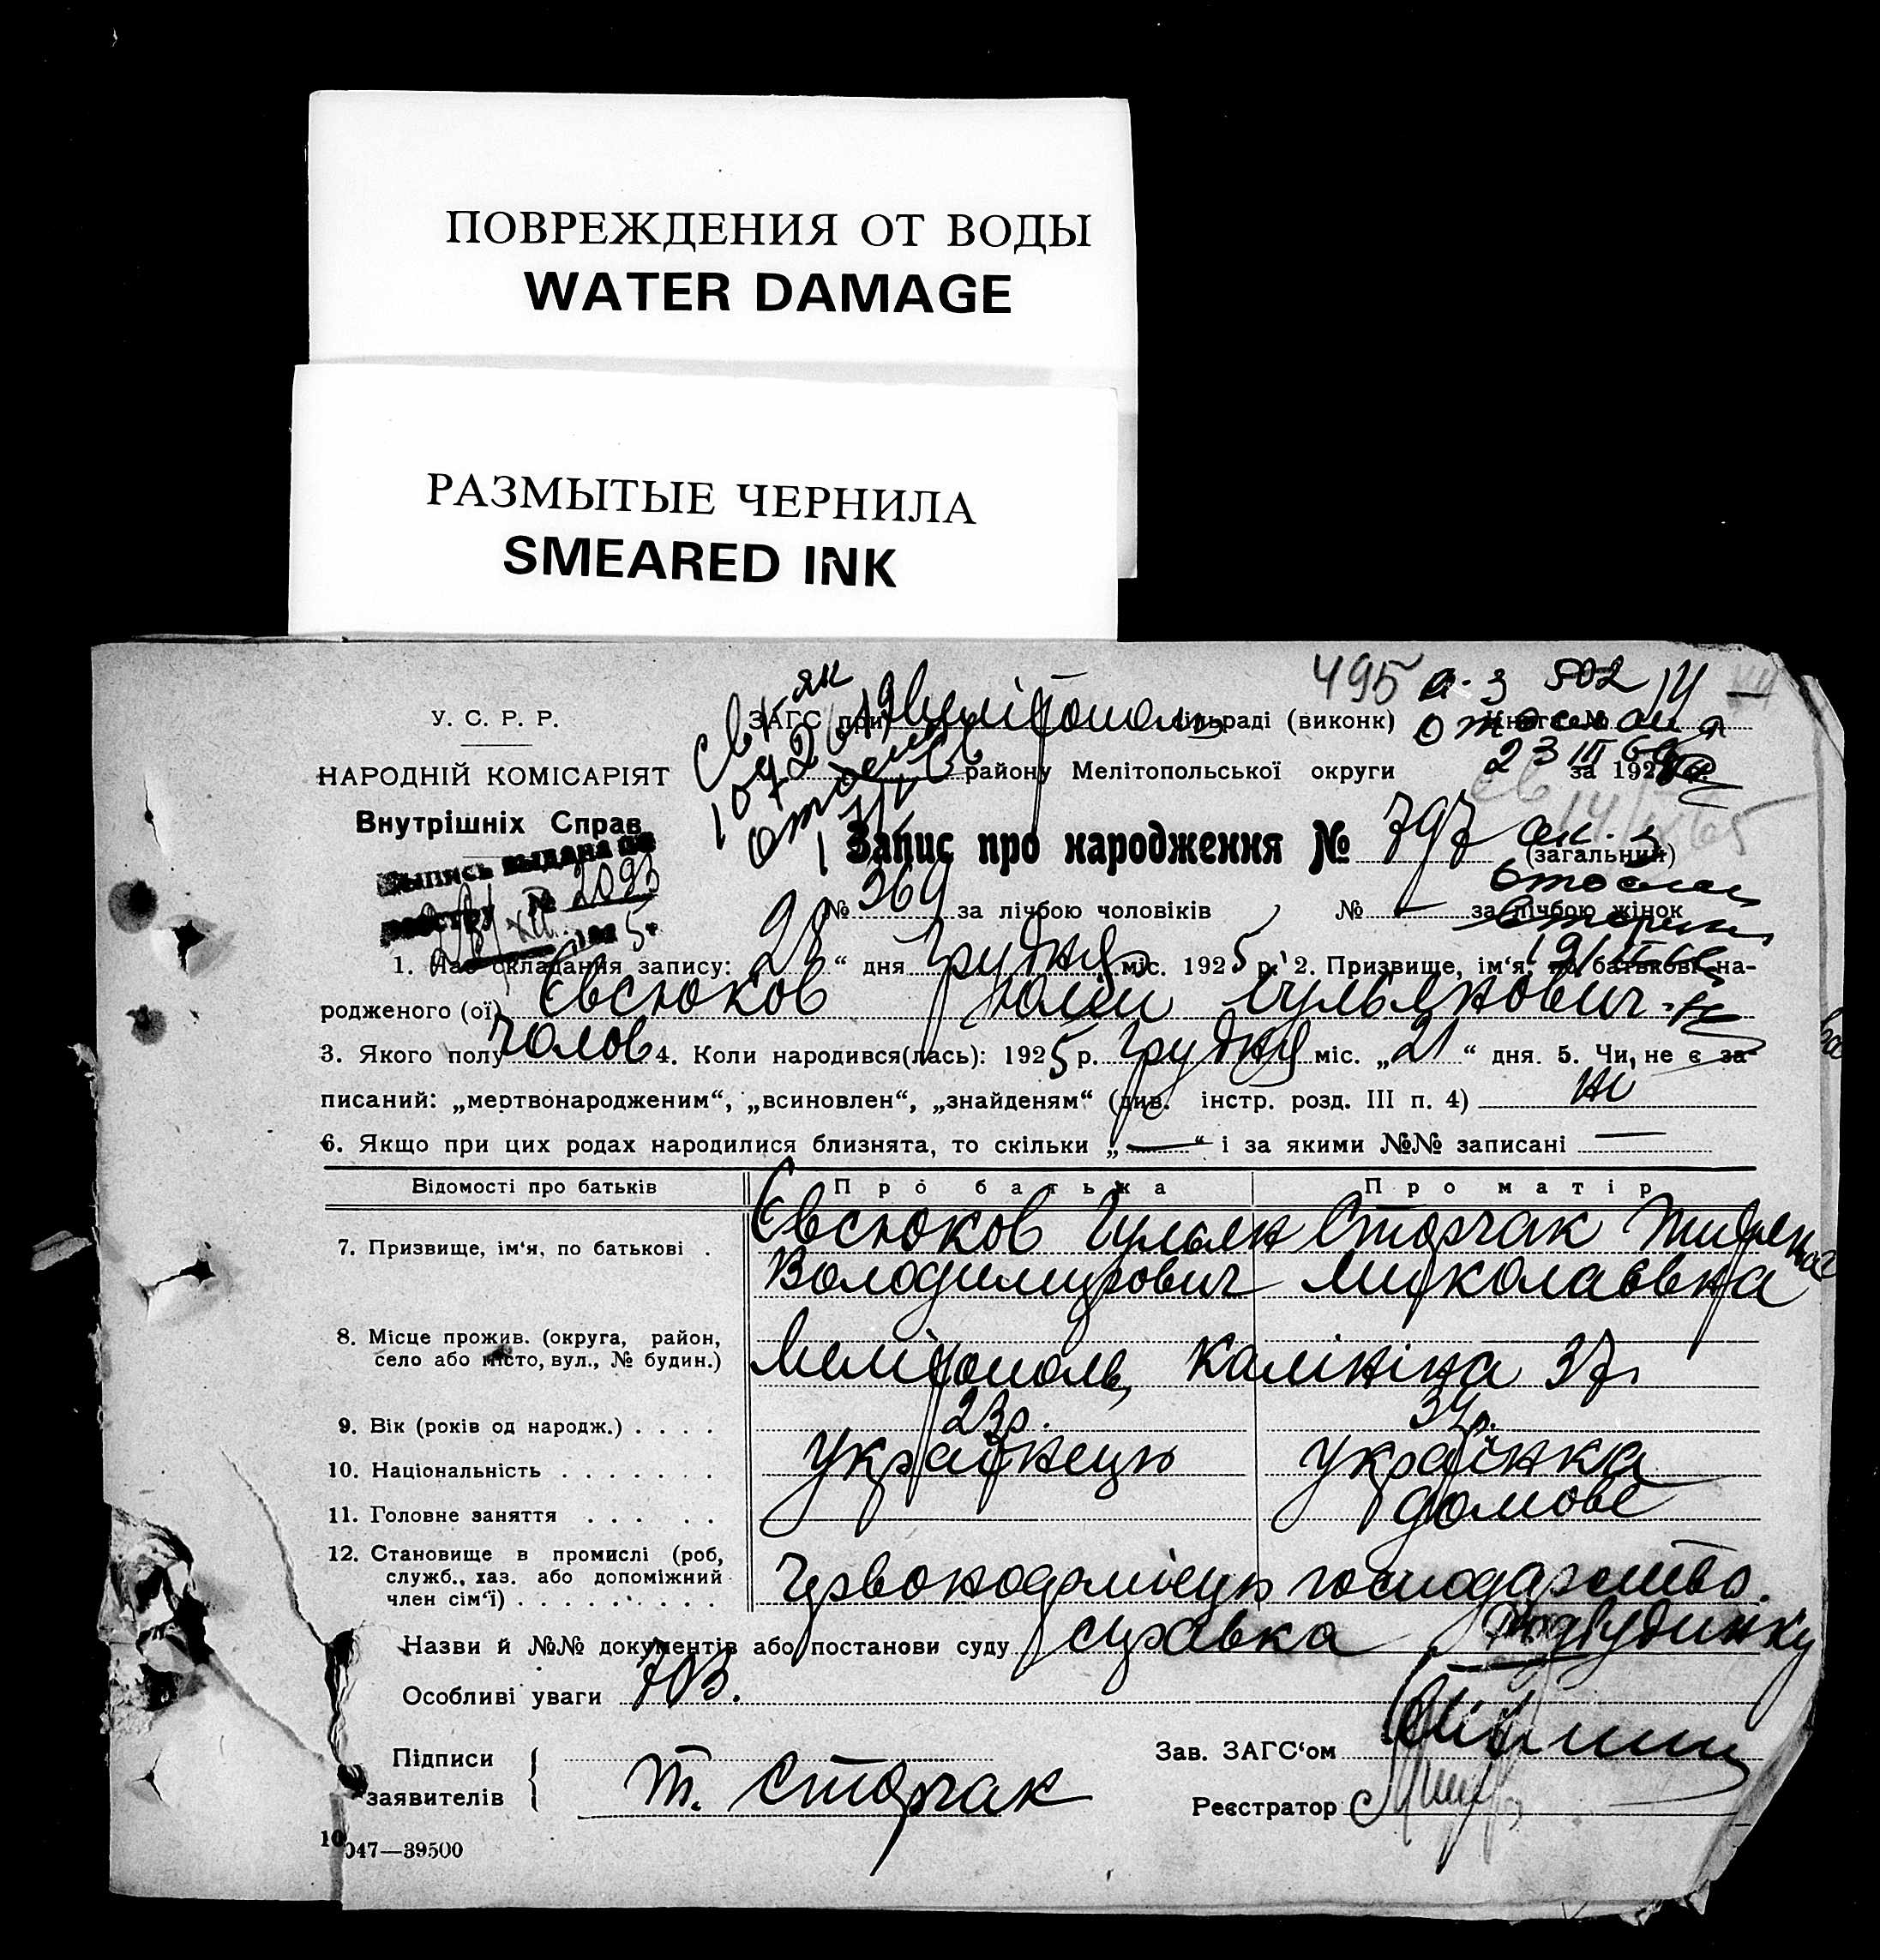 ПОВРЕЖДЕНИЯ ОТ ВОДЫ
WATER DAMAGE
РАЗМЫТЫЕ ЧЕРНИЛА
SMEARED INK
495 а-з 502
У. С. Р. Р.
ЗАГС при Мелітополь сільраді (виконк) Книга №
НАРОДНІЙ КОМІСАРІЯТ
району Мелітопольської округи за 192
Внутрішніх Справ
Выпись выдана по
реестру № 2093
Запис про народження № 797 (загальний)
№ 369 за лічбою чоловіків № — за лічбою жінок
1. Час складання запису: „28“ дня Грудня міс. 1925 р. 2. Призвище, ім‘я, по батькові на-
родженого (ої) Євсюков Юлій Гульянович
3. Якого полу чолов 4. Коли народився(лась): 1925 р. Грудня міс. „21“ дня. 5. Чи, не є за-
писаний: „мертвонародженим“, „всиновлен“, „знайденям“ (див. інстр. розд. III п. 4) ні
6. Якщо при цих родах народилися близнята, то скільки „—“ і за якими №№ записані —
Відомості про батьків Про батька Про матір
7. Призвище, ім‘я, по батькові . Євсюков Гульян Сторчак
Володимирович Миколаєвна
8. Місце прожив. (округа, район,
село або місто, вул., № будин.) Мелітополь, Калініна 37
9. Вік (років од народж.) . . . . 23р. 34р.
10. Національність . . . . . . . українець українка
11. Головне заняття . . . . . домове
12. Становище в промислі (роб,
служб., хаз. або допоміжний
член сім‘ї) . . . . . . . . . Червоноармієць господарство.
Назви й №№ документів або постанови суду справка Родбудинку
Особливі уваги 703.
Підписи
заявителів { Т. Сторчак
Зав. ЗАГС‘ом
Реєстратор
10047—39500